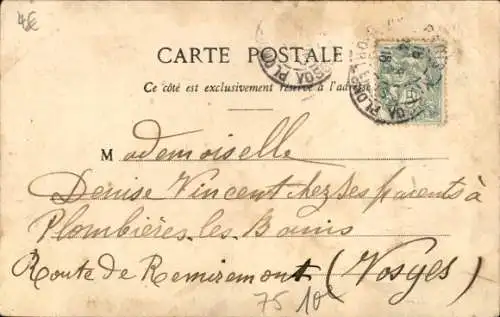 45€
CARTE POSTALE
Ce côté est exclusivement réservé à l'adresse
Mademoiselle
Denise Vincent chez ses parents à
Plombières les Bains
Route de Remiremont (Vosges)
75 10